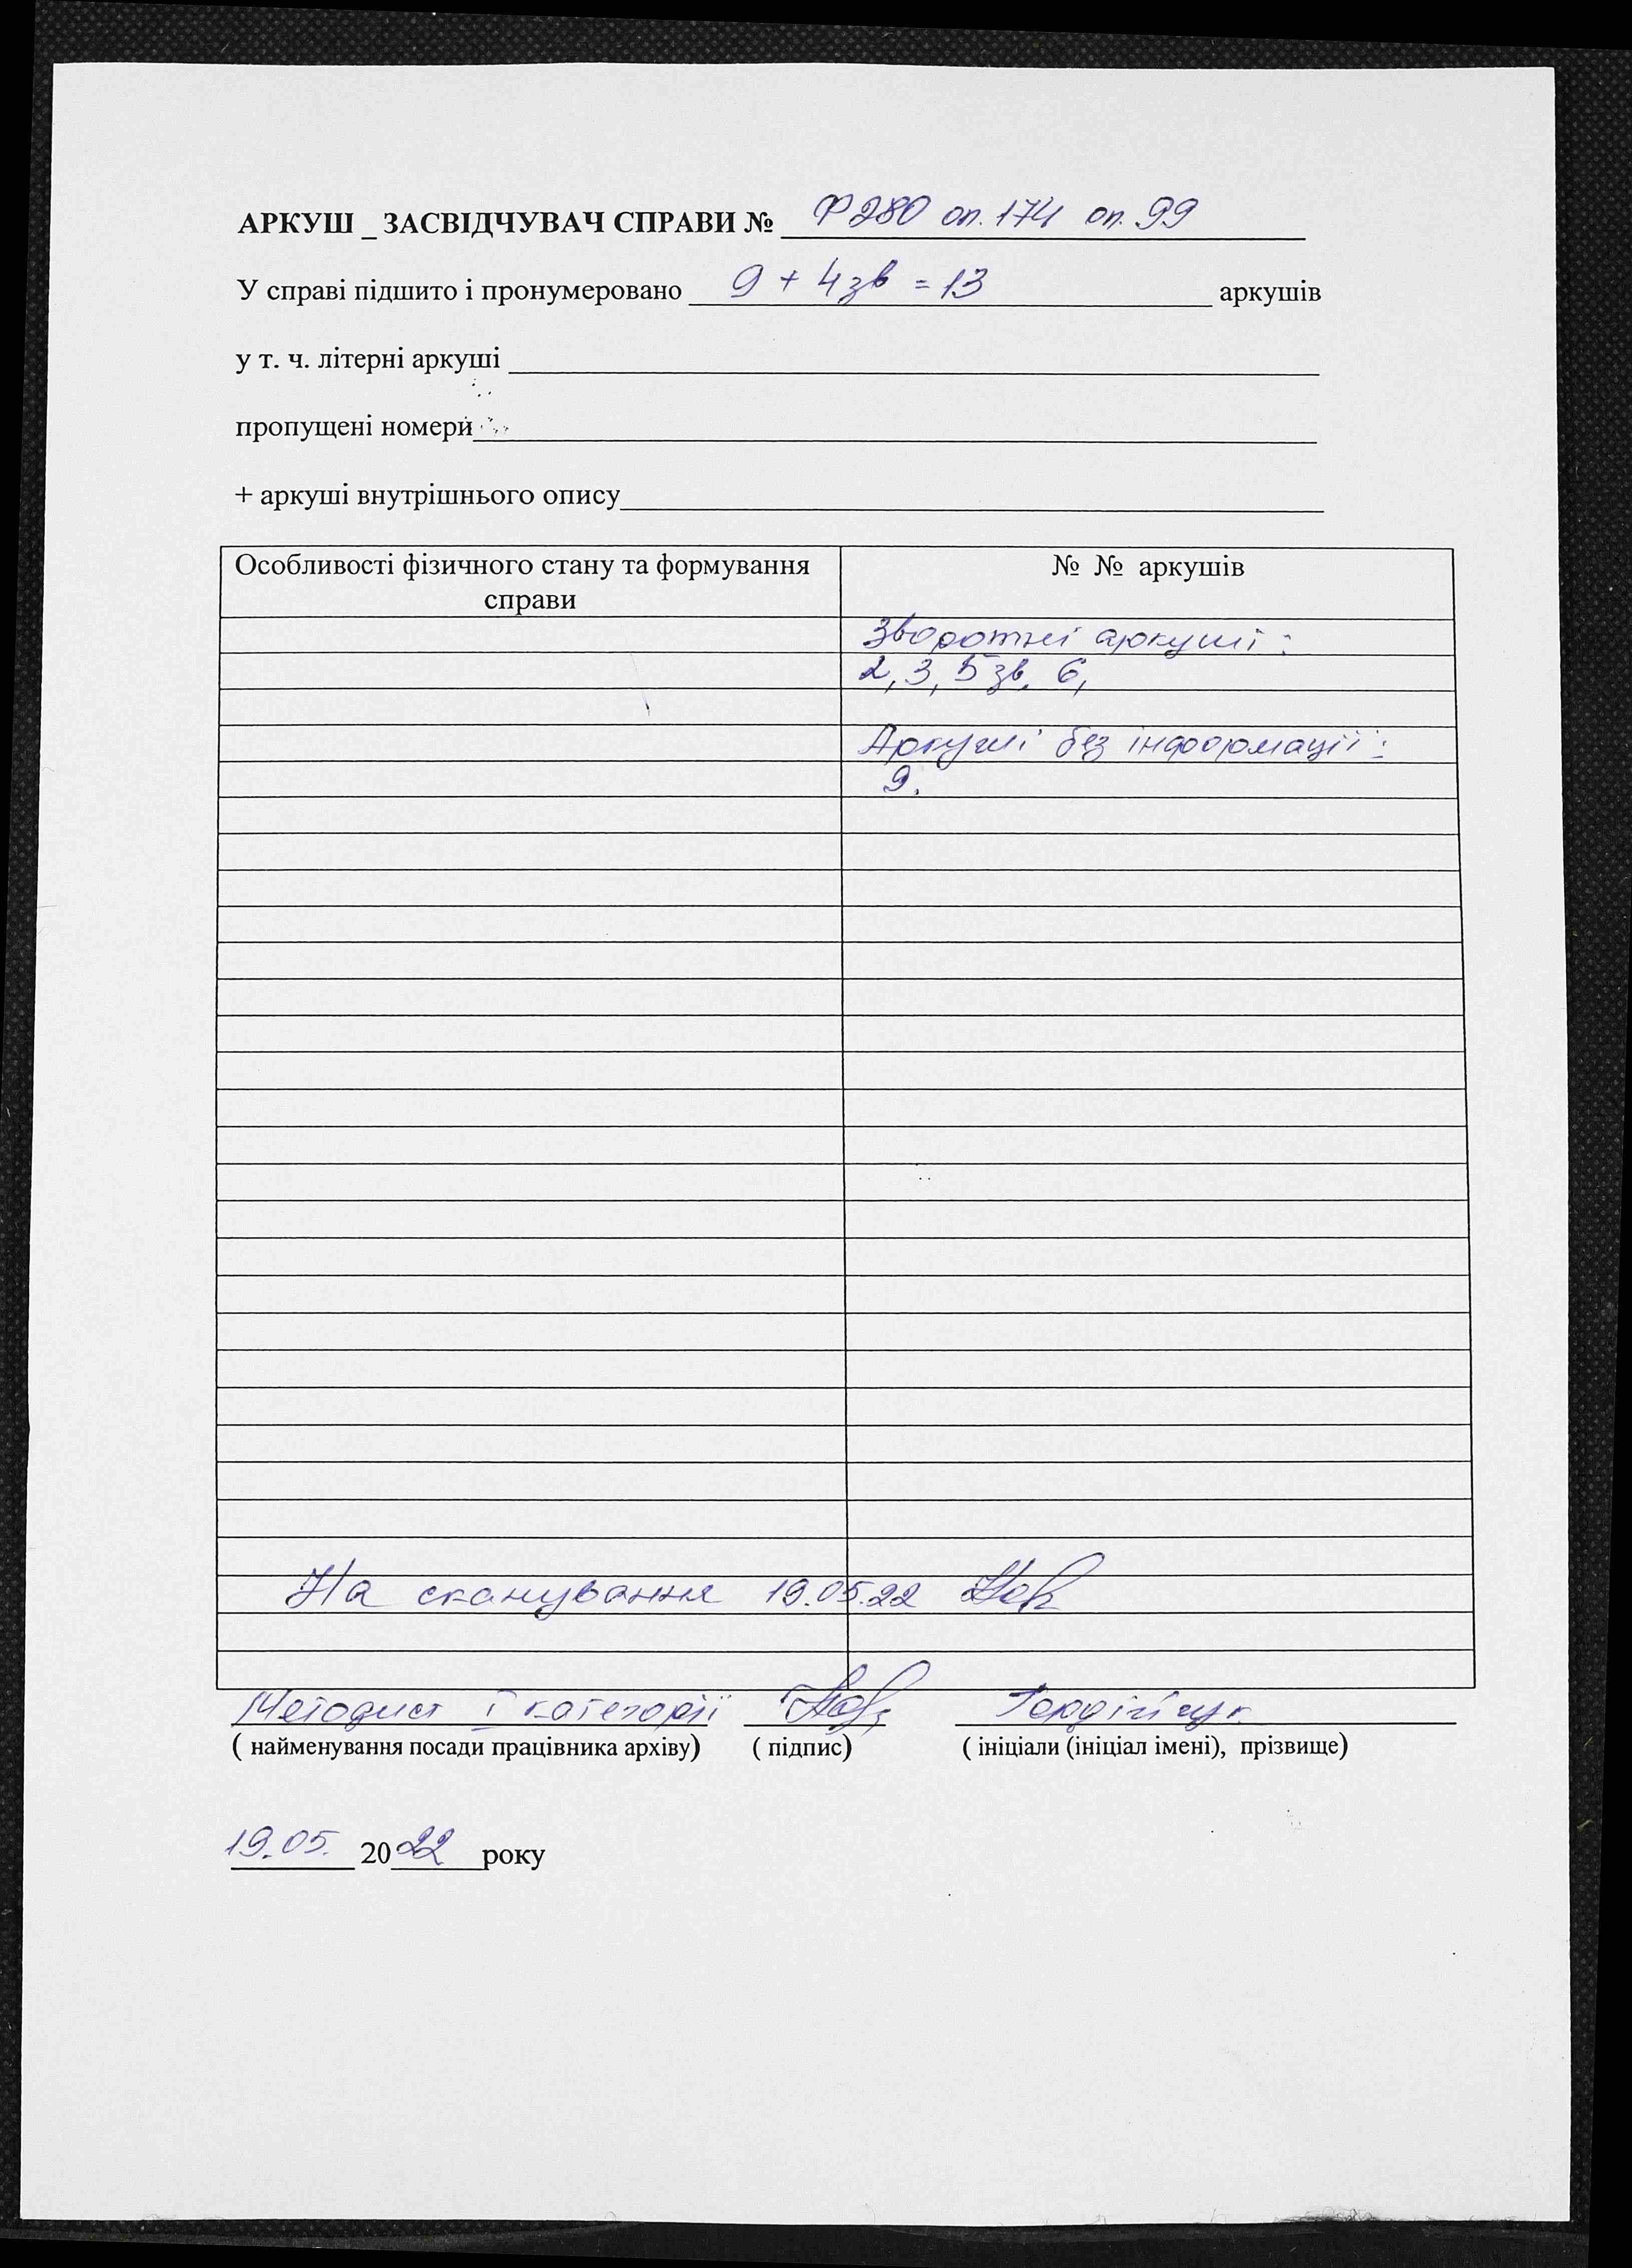 АРКУШ _ ЗАСВІДЧУВАЧ СПРАВИ № Ф 280 оп. 174 оп. 99
У справі підшито і пронумеровано 9 + 4 зв = 13 аркушів
у т. ч. літерні аркуші
пропущені номери
+ аркуші внутрішнього опису
Особливості фізичного стану та формування справи № № аркушів
Зворотні аркуші :
2, 3, 5 зв, 6,
Аркуші без інформації :
9.
На сканування 19.05.22
Методист I категорії Гордійчук
( найменування посади працівника архіву) ( підпис) ( ініціали (ініціал імені), прізвище)
19.05. 2022 року